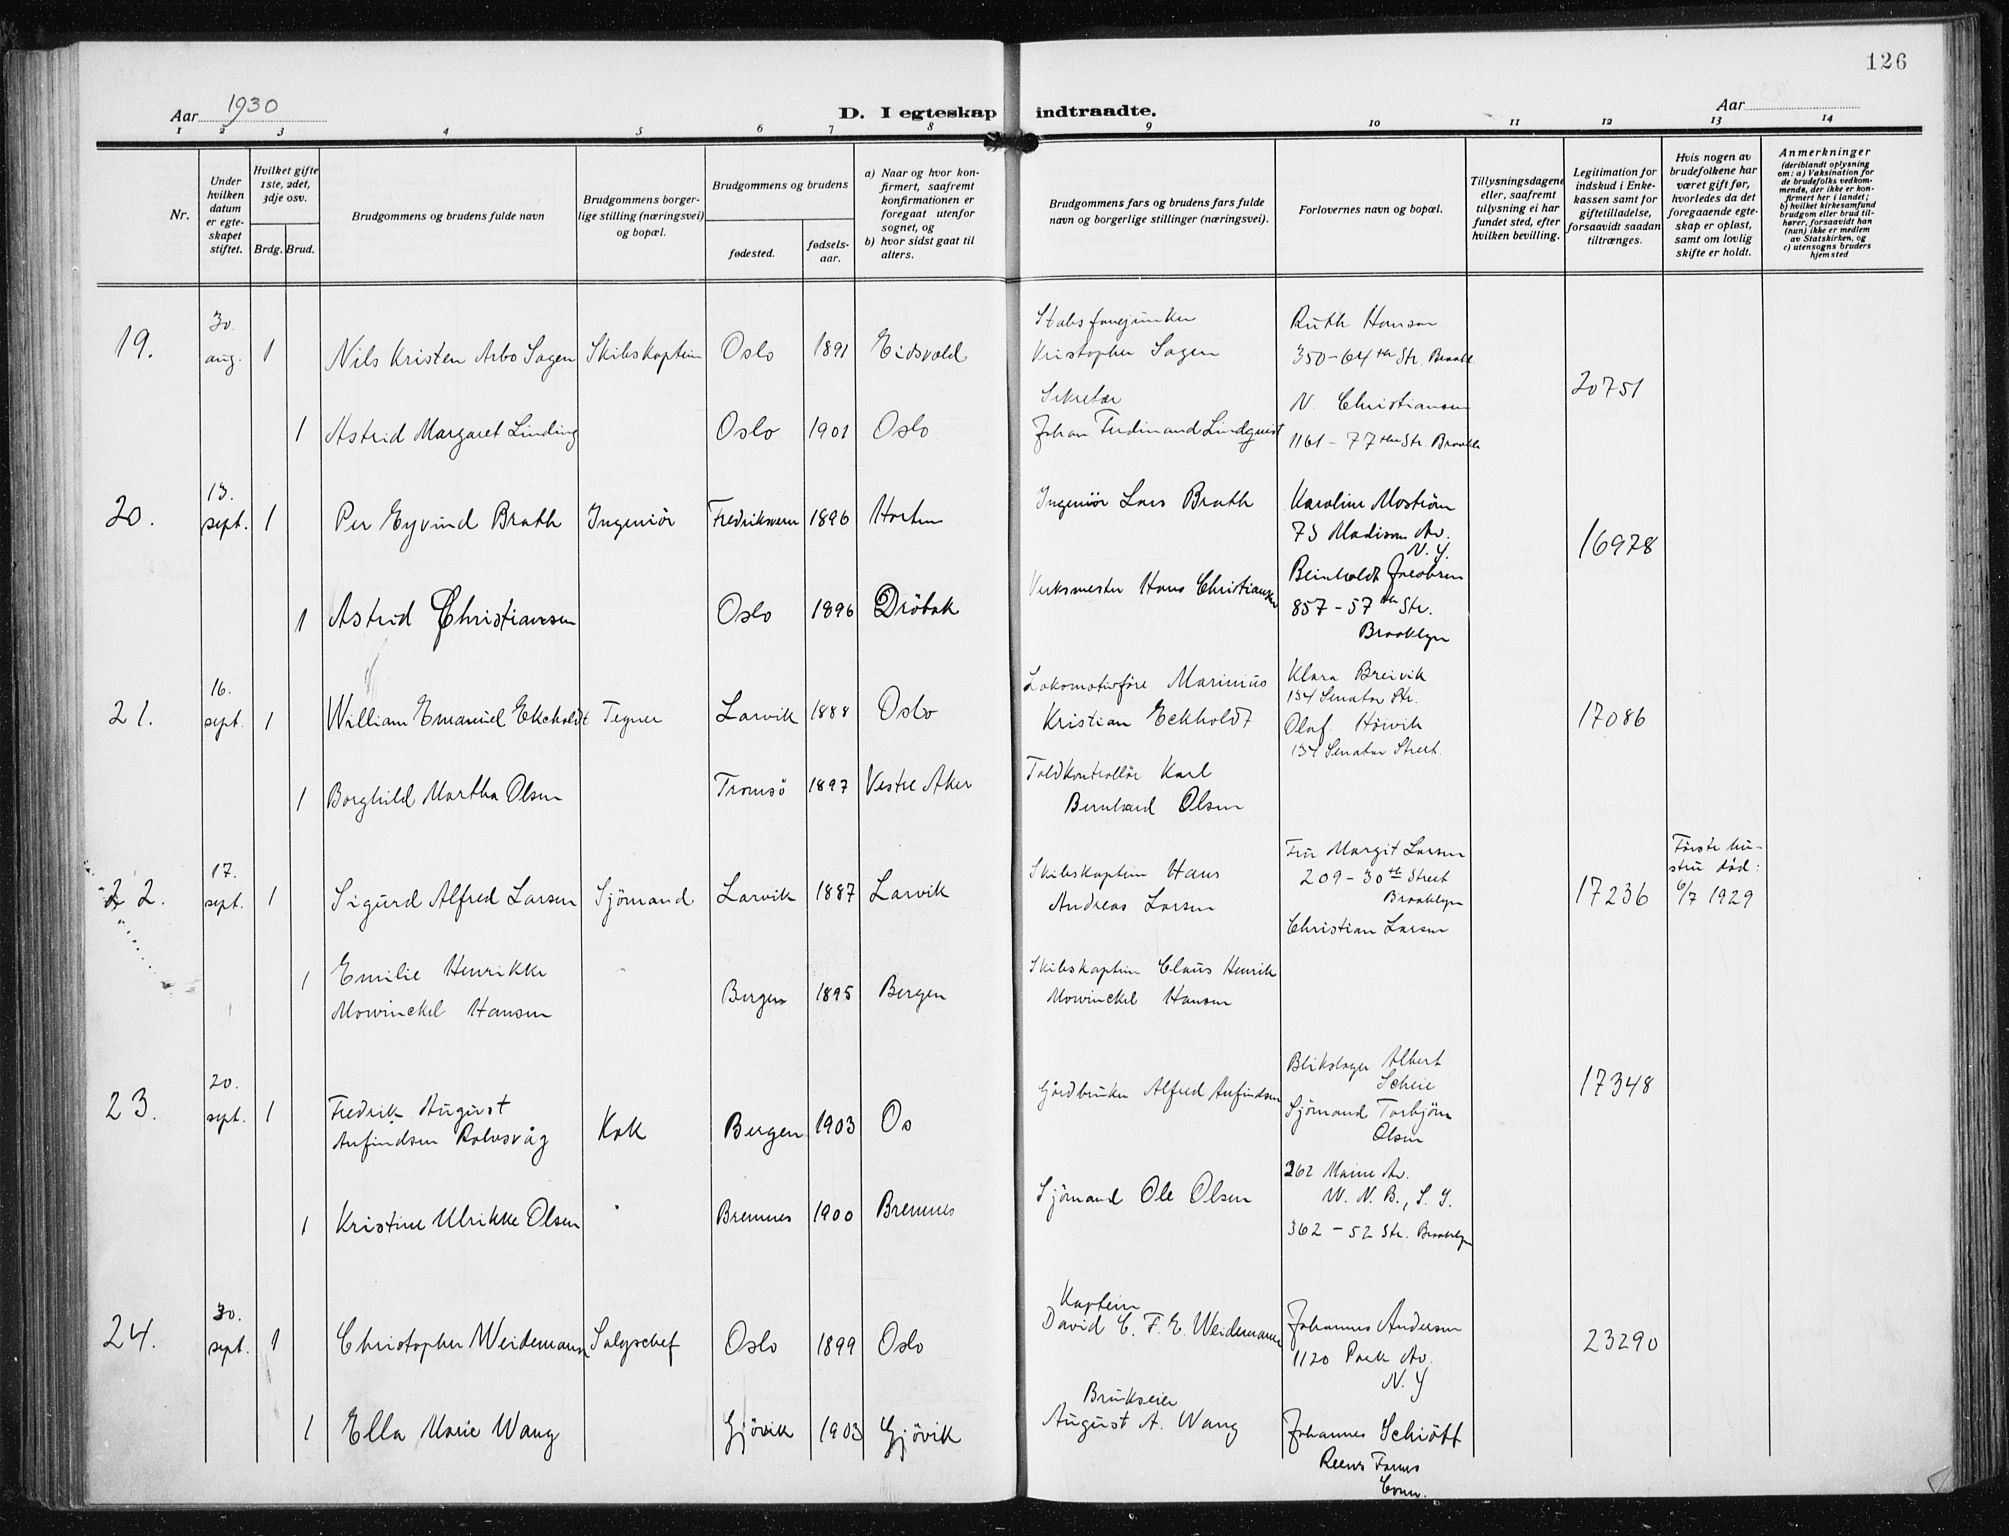 126
Aar 1930
D. I egteskap indtraadte.
Aar
1 2 3 4 5 6 7 8 9 10 11 12 13 14
Nr.
Under hvilken datum er egteskapet stiftet.
Hvilket gifte 1ste, 2det, 3dje osv.
Brdg. Brud.
Brudgommens og brudens fulde navn
Brudgommens borgerlige stilling (næringsvei) og bopæl.
Brudgommens og brudens
fødested.
fødselsaar.
a) Naar og hvor konfirmert, saafremt konfirmationen er foregaat utenfor sognet, og
b) hvor sidst gaat til alters.
Brudgommens fars og brudens fars fulde navn og borgerlige stillinger (næringsvei).
Forlovernes navn og bopæl.
Tillysningsdagene eller, saafremt tillysning ei har fundet sted, efter hvilken bevilling.
Legitimation for indskud i Enkekassen samt for giftetilladelse, forsaavidt saadan tiltrænges.
Hvis nogen av brudefolkene har været gift før, hvorledes da det foregaaende egteskap er opløst, samt om lovlig skifte er holdt.
Anmerkninger
(deriblandt oplysning om: a) Vaksination for de brudefolks vedkommende, der ikke er konfirmert her i landet; b) hvilket kirkesamfund brudgom eller brud tilhører, forsaavidt han (hun) ikke er medlem av Statskirken, og c) utensogns bruders hjemsted
19. 30. aug. 1 Nils Kristen Arbo Sagen Skibskaptein Oslo 1891 Eidsvold
Stabsfanejunker
Kristopher Sagen
Ruth Hansen
350-64th Str. Brookl.
20751
1 Astrid Margaret Linding Oslo 1901 Oslo
Sekretær
Johan Ferdinand Lindquist
N. Christiansen
1161 - 77th Str. Brookln
20. 13. sept. 1 Per Eyvind Brath Ingeniør Fredriksvern 1896 Horten
Ingeniør Lars Brath
Karoline Moström
73 Madison Av.
N.Y.
16978
1 Astrid Christiansen Oslo 1896 Dröbak
Verksmester Hans Christiansen
Reinholdt Jacobsen
857-57th Str.
Brooklyn
21. 16. sept. 1 William Emanuel Ekcholdt Tegner Larvik 1888 Oslo
Lokomotivföre Marinius
Kristian Eckholdt
Klara Breivik
134 Senator Str.
Olaf Höivik
134 Senator Street.
17086
1 Borghild Martha Olsen Tromsö 1897 Vestre Aker
Toldkontrollör Karl
Bernhard Olsen
22. 17. sept. 1 Sigurd Alfred Larsen Sjömand Larvik 1887 Larvik
Skibskaptein Hans
Andreas Larsen
Fru Margit Larsen
209-30th Street
Brooklyn
Christian Larsen
17236
Förste hustru död: 6/7 1929
1 Emilie Henrikke
Mowinckel Hansen
Bergen 1895 Bergen
Skibskaptein Claus Henrik
Mowinckel Hansen
23. 20. sept. 1 Fredrik August
Anfindsen Rolvsvåg
Kok Bergen 1903 Os
Gårdbruker Alfred Anfindsen
Blikslager Albert
Scheie
Sjömand Torbjörn
Olsen
17348
1 Kristine Ulrikke Olsen Bremnes 1900 Bremnes
Sjömand Ole Olsen
262 Maine Av.
W. N. B., S. I.
362-52 Str. Brooklyn
24. 30. sept. 1 Christopher Weidemann Salgschef Oslo 1899 Oslo
Kaptein
David C. F. E. Weidemann
Johannes Andersen
1120 Park Av.
N.Y
23290
1 Ella Marie Wang Gjövik 1903 Gjövik
Brukseier
August A. Wang
Johannes Schiött
Farms
Conn.